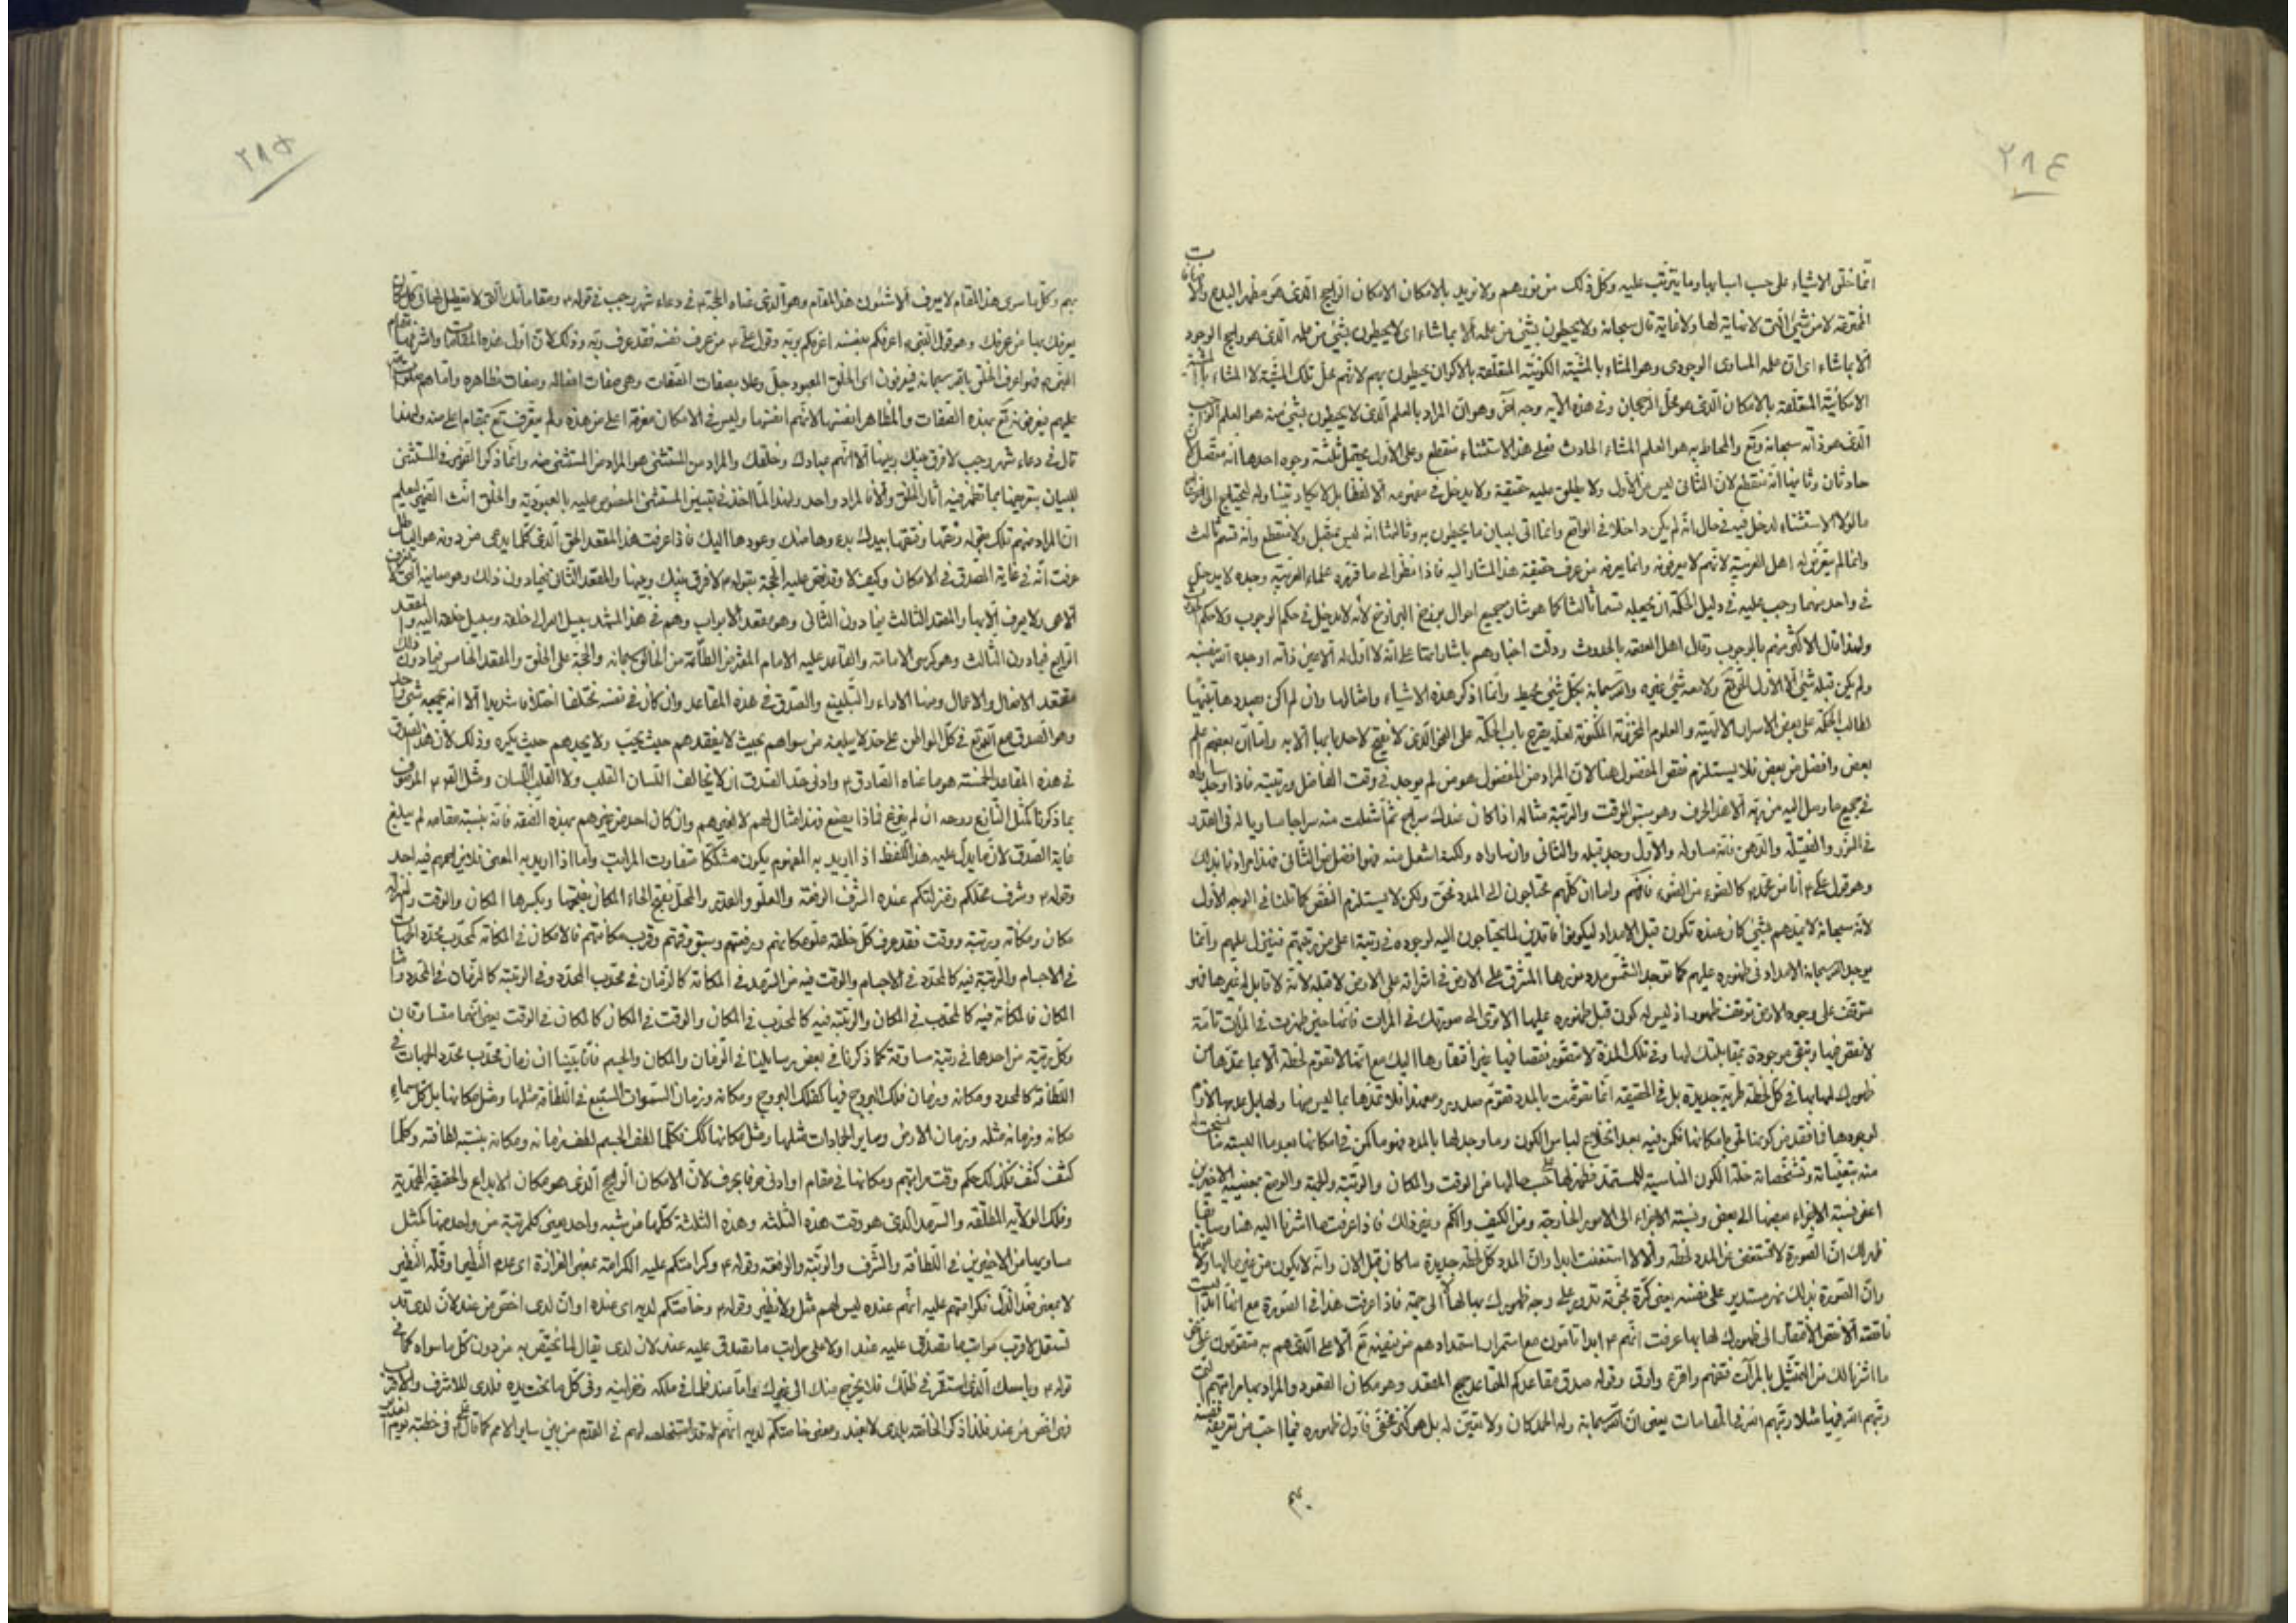 ٢٨٤
انما خلق الاشياء على حسب اسبابها وما يترتب عليه وكل ذلك من نورهم ولا نريد بالامكان الامكان الراجح الذى هو مظهر البدع والا
المخترعة لا من شئ التى لا نهاية لها ولا غاية قال سبحانه ولا يحيطون بشئ من علمه الا بما شاء اى لا يحيطون بشئ من علمه الذى هو راجح الوجود
الا بما شاء اى ان علمه المساوى الوجودى وهو المشاء بالمشية الكونية المتعلقة بالاكوان يحيطون به لانهم محل تلك المشية لا المشاء
الامكانية المتعلقة بالامكان الذى هو محل الرجحان وفى هذه الآية وجه آخر وهو ان المراد بالعلم الذى لا يحيطون بشئ منه هو العلم الواجب
الذى هو ذاته سبحانه وتع والمحاط به هو العلم المشاء الحادث فعلى هذا الاستثناء منقطع وعلى الاول يحتمل ثلثة وجوه احدها انه متصل
حادثان وثانيها انه منقطع لان الثانى ليس من الاول ولا يطلق عليه حقيقة ولا يدخل فى مفهومه الا لفظا بل لا يكاد يتناوله
ما لولا الاستثناء لدخل فيه فى حال انه لم يكن داخلا فى الواقع وانما اتى لبيان ما يحيطون به وثالثها انه ليس بمتصل ولا منقطع وانه قسم ثالث
وانما لم يتعرض له اهل العربية لانهم لا يعرفونه وانما يعرفه من عرف حقيقة هذا المشار اليه فاذا نظر الى ما قرره علماء العربية وجده لا يدخل
فى واحد منهما وجب عليه فى دليل الحكمة ان يجعله قسما ثالثا كما هو شان جميع احوال برزخ البرازخ لانه لا يدخل فى حكم الوجوب ولا حكم
ولهذا قال الاكثر منهم بالوجوب وقال اهل العصمة بالحدوث ودلت اخبارهم باشاراتها على انه لا اول له الا عين ذاته اوجده الله بنفسه
ولم يكن قبله شئ الا الاول الحق تع ولا معه شئ غيره والله سبحانه بكل شئ محيط وانما اذكر هذه الاشياء وامثالها وان لم اكن بصددها تنبيها
لطالب الحكمة على بعض الاسرار الالهية والعلوم المخزونة المكنونة لعله يقرع باب الحكمة على النحو الذى لا يفتح لاحد بابها الا به واما ان بعضهم اعلم
بعض وافضل من بعض فلا يستلزم نقص المفضول هنا لان المراد من المفضول هو من لم يوجد فى وقت الفاضل ورتبته فاذا اوجد ساواه
فى جميع ما وصل اليه من ربه الا هذا الحرف وهو سبق الوقت والرتبة مثاله اذا كان عندك سراج ثم اشعلت منه سراجا مساويا له فى القدر
فى النور والفتيلة والدهن فانه مساو له والاول وجد قبله والثانى وان ساواه ولكنه اشتعل منه فهو افضل من الثانى فهذا مرادنا بذلك
وهو قول على ع انا من محمد كالضوء من الضوء فافهم واما ان كلهم محتاجون الى المدد فحق ولكن لا يستلزم النقص كما قلنا فى الوجه الاول
لانه سبحانه لا يمدهم بشئ كان عنده تكون قبل الامداد ليكونوا فاقدين لما يحتاجون اليه لوجوده فى رتبة اعلى من رتبتهم فينزل عليهم وانما
يوجد الله سبحانه الامداد فى ظهوره عليهم كما توجد الشمس مدد نورها المشرق على الارض فى اشراقه على الارض لا قبله لانه لا قابل له غيرها فهو
متوقف على وجود الارض توقف ظهور اذ ليس له كون قبل ظهوره عليها الا ترى الى صورتك فى المرآت فانها حين ظهرت فى المرآت تامة
لا نقص فيها وتبقى موجودة بمقابلتك لها وفى تلك المدة لا تتصور نقصا فيها غير افتقارها اليك مع انها لا تقوم لحظة الا بما يمدها من
ظهورك لها بها فى كل لحظة طرية جديدة بل فى الحقيقة انما تقومت بالمدد تقوم صدور ومع هذا فلا تمدها بما ليس منها
لوجودها
منه بتعيناته وتشخصاته حلة الكون المناسبة للمستمد فظهر لها حسب حالها من الوقت والمكان والرتبة والجهة والوضع بمعنييه الاخيرين
اعنى نسبة الاجزاء بعضها الى بعض ونسبة الاجزاء الى الامور الخارجة ومن الكيف والكم وغير ذلك فاذا عرفت ما اشرنا اليه هنا وسابقا
ظهر لك ان الصورة لا تستغنى عن المدد لحظة والا لاستغنت ابدا وان المدد كل لحظة جديدة ما كان قبل الان وانه لا يكون من غير مالها
وان الصورة بذلك نهر مستدير على نفسه يعنى كرة مجوفة تدور على وجه ظهورك بها لها لا الى جهة فاذا عرفت هذا فى الصورة مع انها ابدا ليست
ناقصة الا نقص الافتقار الى ظهورك لها بها عرفت انهم ع ابدا تامون مع استمرار استمدادهم من فيضه تع الاعلى الذى هم به متقومون
ما اشرنا لك من التمثيل بالمرآت فتفهم واقرء وارق وقوله صدق مقاعدكم المقاعد جمع المقعد وهو مكان القعود والمراد بها مراتبهم التى
رتبهم الله فيها مثلا رتبهم الله فى المقامات يعنى ان الله سبحانه وله الحمد كان ولا تعين له بل هو كنز مخفى فاول ظهوره فيما احب من تعريفه نفسه
بهم
٢٨٥
بهم وكل ما سوى هذا المقام لا يعرف الا شئون هذا المقام وهو الذى عناه الحجة ع فى دعاء شهر رجب فى قوله ع ومقاماتك التى لا تعطيل لها فى كل مكان
يعرفك بها من عرفك وهو قول النبى ص اعرفكم بنفسه اعرفكم بربه وقول على ع من عرف نفسه فقد عرف ربه وذلك لان اول هذه المقامات واشرفها مقام
النبى ص فهو اعرف الخلق بالله سبحانه فيعرفون اى الخلق المعبود جل وعلا بصفات الصفات وهى صفات افعاله وصفات مظاهره واما هم صلوات الله
عليهم يعرفونه تع بهذه الصفات والمظاهر انفسها لانهم انفسها وليس فى الامكان معرفة اعلى من هذه ولم يتعرف تع بمقام اعلى منه ولهذا
قال فى دعاء شهر رجب لا فرق بينك وبينها الا انهم عبادك وخلقك والمراد من المستثنى هو المراد من المستثنى منه وانما ذكر الضمير فى المستثنى
للبيان بتوجيهها بما تظهر فيه آثار الخلق والا فالمراد واحد ولهذا لما اخذ فى تبيين المستثنى المنصوص عليه بالعبودية والخلق انث الضمير ليعلم
ان المراد منهم تلك بقوله رتقها وفتقها بيدك بدءها منك وعودها اليك فاذا عرفت هذا المقعد الحق الذى كلما يدعى من دونه هو الباطل
عرفت انه فى غاية الصدق فى الامكان وكيف لا وقد نص عليه الحجة بقوله ع لا فرق بينك وبينها والمقعد الثانى فيما دون ذلك وهو معانيه التى لا تعرف
الا هى ولا يعرف الا بها والمقعد الثالث فيما دون الثانى وهو مقعد الابواب وهم فى هذا المشهد سبيل الله الى خلقه وسبيل خلقه اليه والمقعد
الرابع فيما دون الثالث وهو كرسى الامامة والقاعد عليه الامام المفترض الطاعة من الخالق سبحانه والحجة على الخلق والمقعد الخامس فيما دون ذلك
مقعد الافعال والاعمال ومنها الاداء والتبليغ والصدق فى هذه المقاعد وان كان فى نفسه مختلفا اختلافا شديدا الا انه يجمعه شئ واحد
وهو الصدق مع الله تع فى كل المواطن على حد لا يبلغه من سواهم بحيث لا يفقدهم حيث يحب ولا يجدهم حيث يكره وذلك لان هذا الصدق
فى هذه المقاعد الخمسة هو ما عناه الصادق ع وادنى حد الصدق ان لا يخالف اللسان القلب ولا القلب اللسان ومثل القوم الموصوف
بما ذكرنا كمثل النازع روحه ان لم ينزع فماذا يصنع فهذا مثال لهم لا لغيرهم وان كان احد من غيرهم بهذه الصفة فانه بنسبة مقامه لم يبلغ
غاية الصدق لان ما يدل عليه هذا اللفظ اذا اريد به المفهوم يكون مشككا متفاوت المراتب واما اذا اريد به المعنى فلا يزاحمهم فيه احد
وقوله ع وشرف محلكم ومنزلتكم عنده الشرف الرفعة والعلو والقدر والمحل بفتح الحاء المكان بفتحها وبكسرها المكان والوقت
مكان ومكانة ورتبة ووقت فقد عرف كل خلقه علو مكانهم ورفعتهم وسبق وقتهم وقرب مكانتهم فالامكان فى المكانة كمحدب محدد الجهات
فى الاجسام والرتبة فيه كالمحدد فى الاجسام والوقت فيه من السرمد فى المكانة كالزمان فى محدب المحدد وفى الرتبة كالزمان فى المحدد واما
المكان فالمكانة فيه كالمحدب فى المكان والرتبة فيه كالمحدب فى المكان والوقت فى المكان كالمكان فى الوقت يعنى انهما متساوقان
وكل رتبة من احدها فى رتبة مساوقة كما ذكرنا فى بعض رسايلنا فى الزمان والمكان والجسم فانا بينا ان زمان محدب محدد الجهات فى
اللطافة كالمحدد ومكانه وزمان فلك البروج فيها كفلك البروج ومكانه وزمان السموات السبع فى اللطافة مثلها ومثل مكانها بل كل سماء
مكانه وزمانه مثله وزمان الارض وساير الجمادات مثلها ومثل مكانها كك فكلما لطف الجسم لطف زمانه ومكانه بنسبة لطافته وكلما
كثف كثف فكذلك حكم وقت مراتبهم ومكانها فى مقام او ادنى حرفا بحرف لان الامكان الراجح الذى هو مكان الابداع والحقيقة المحمدية
وفلك الولاية المطلقة والسرمد الذى هو وقت هذه الثلثة وهذه الثلثة كلها من شبه واحد يعنى كل مرتبة من واحد منها كمثل
مساويها من الاخيرين فى اللطافة والشرف والرتبة والرفعة وقوله ع وكرامتكم عليه الكرامة بمعنى العزازة اى عدم النظير او قلة النظير
لا بمعنى ضد الذل فكرامتهم عليه انهم عنده ليس لهم مثل ولا نظير وقوله ع وخاصتكم لديه اى عنده او ان لدى اخص من عند لان لدى قد
تستعمل لاقرب مراتب ما تصدق عليه عند او لاعلى مراتب ما تصدق عليه عند لان لدى يقال لما يختص به من دون كل ما سواه كما فى
قوله ع وباسمك الذى استقر فى ظلك فلا يخرج منك الى غيرك واما عند فلما فى ملكه وخزاينه وفى كل ما تحت يده فلدى للاشرف والاقرب
فهى اخص من عند فلذا ذكر الخاصة بلدى لا بعند ومعنى خاصتكم لديه انهم له قد استخلصه لهم فى القدم من بين ساير الامم كما قال على ع فى خطبته يوم الغدير